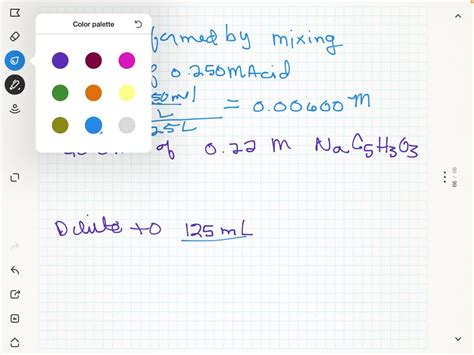 Color palette
formed by mixing
0.250M Acid
50ml
L = 0.00600 M
25L
of 0.22 M NaC5H3O3
Dilute to 125mL
99 / 99